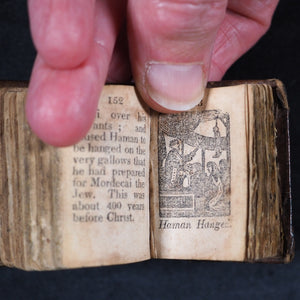 152
over his
ants ; and
used Haman to
be hanged on the
very gallows that
he had prepared
for Mordecai the
Jew. This was
about 400 years
before Christ.
Haman Hanged.